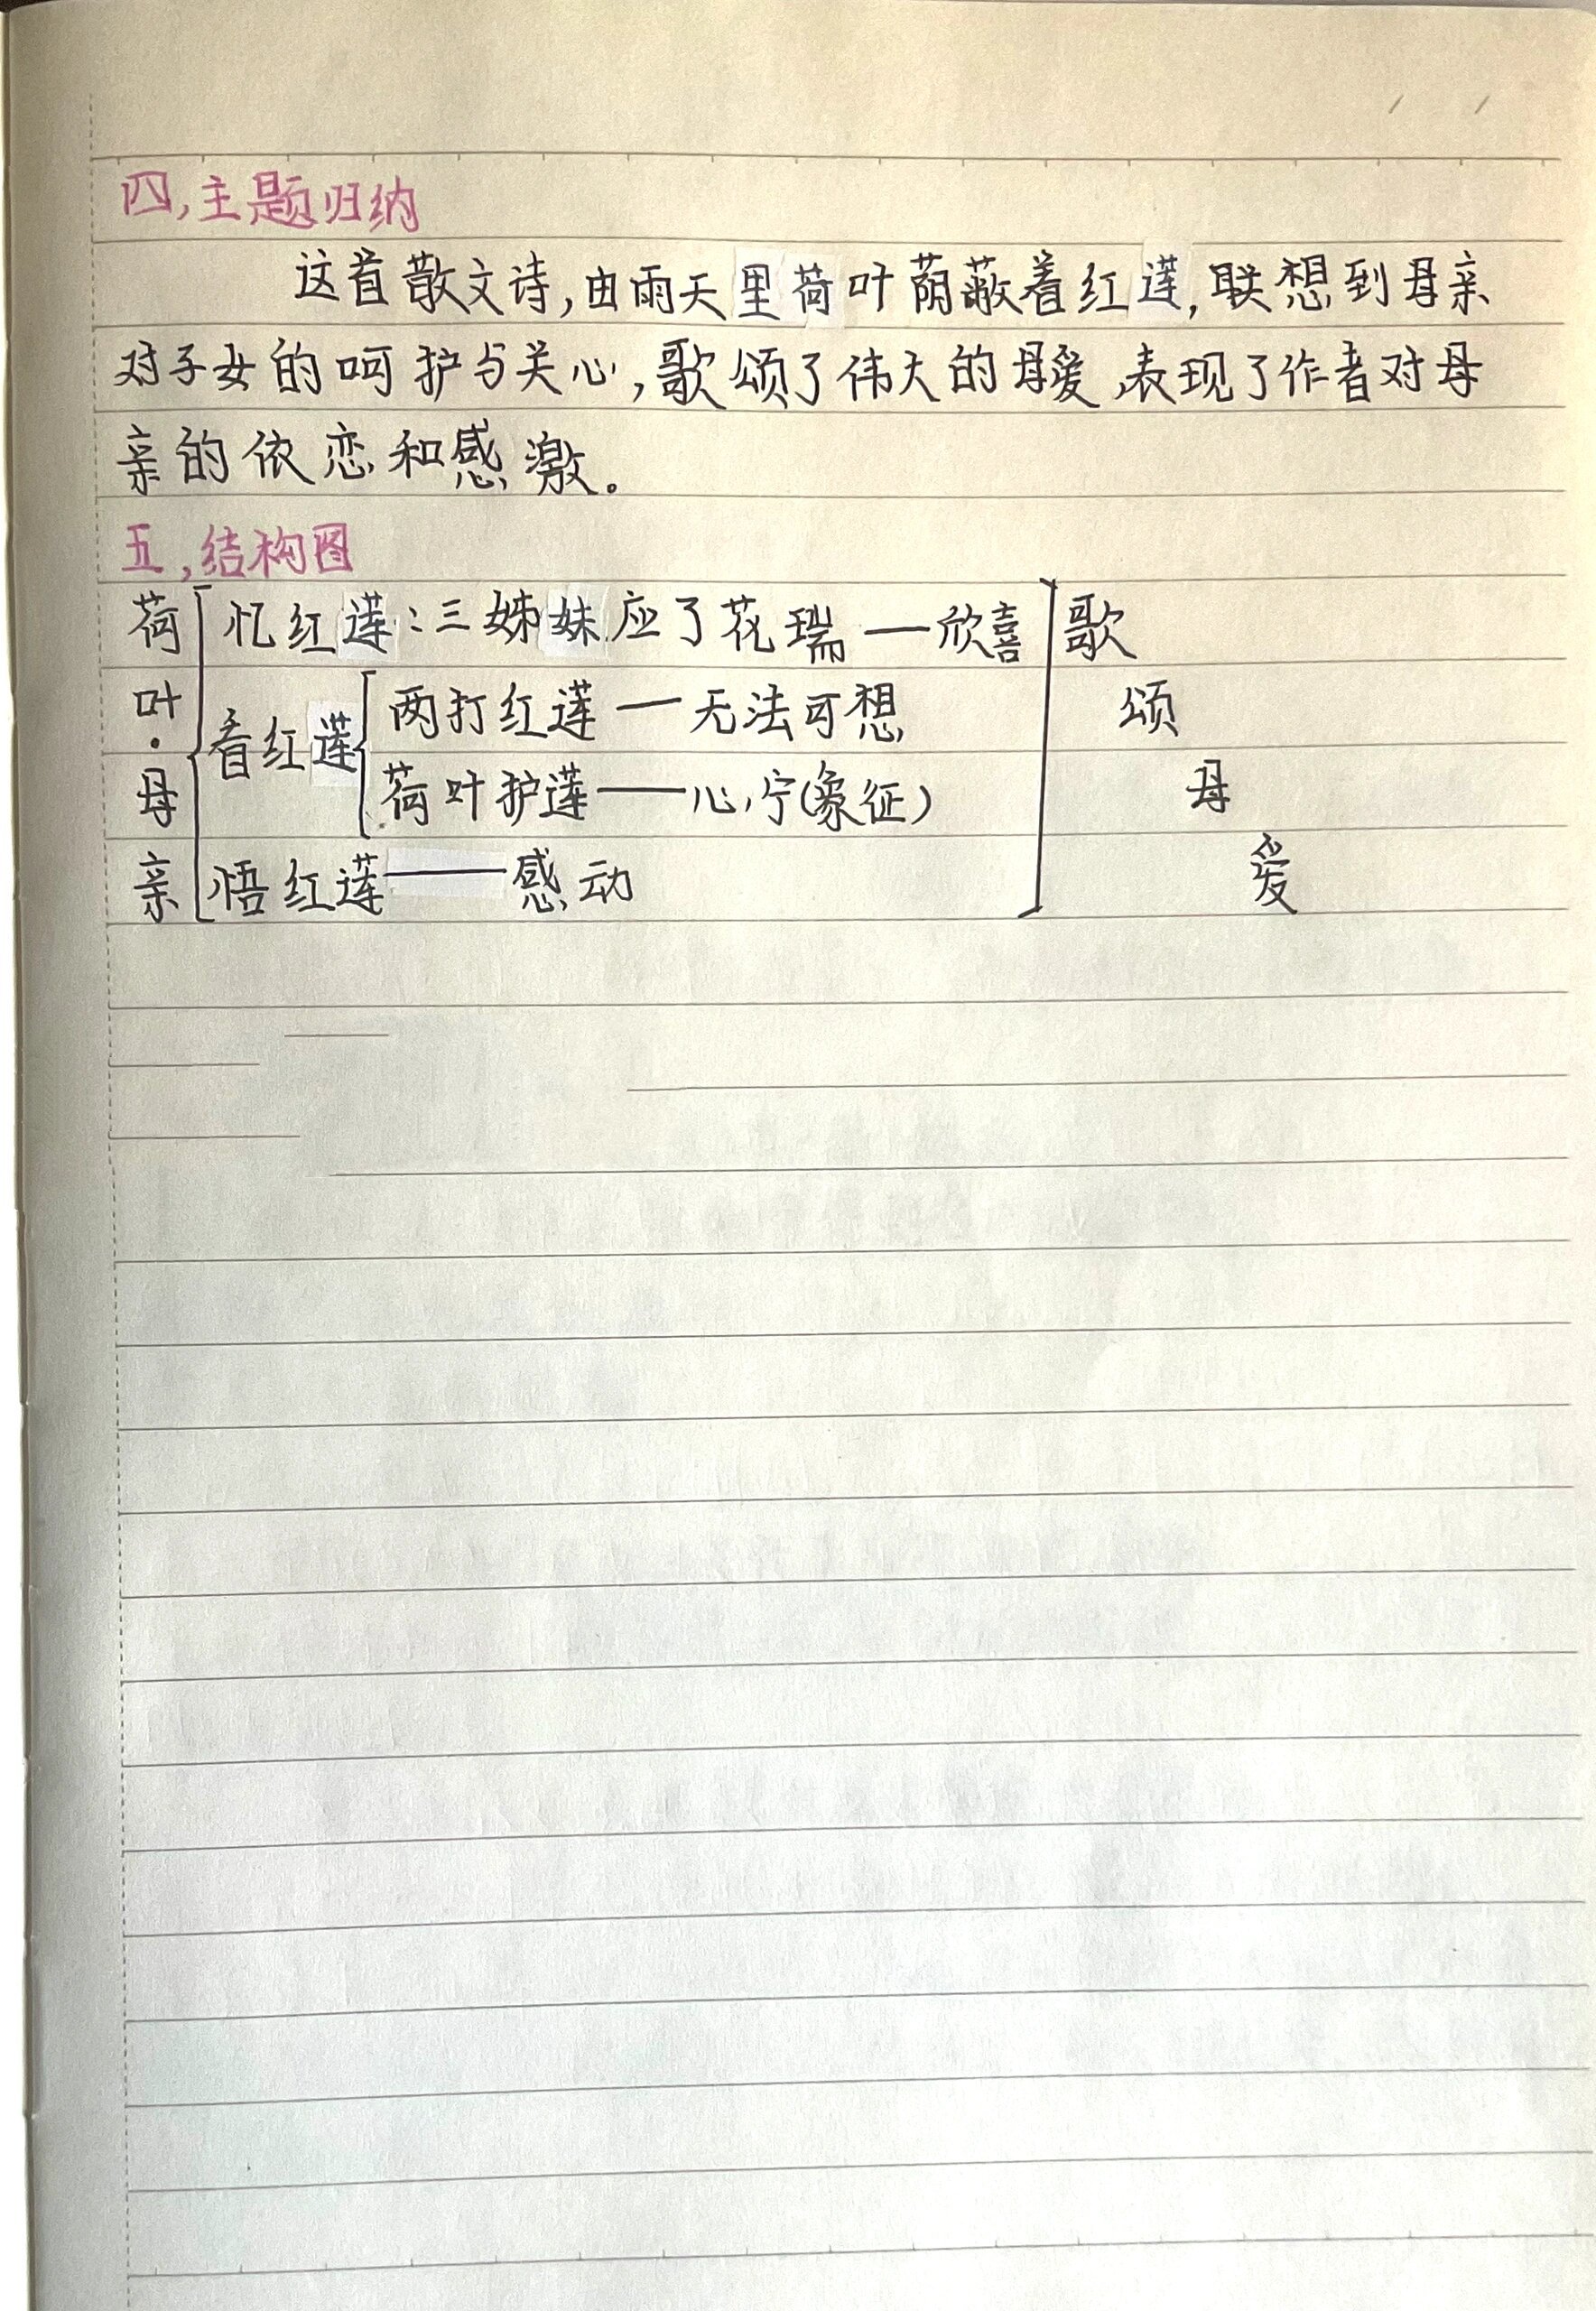 四,主题归纳
这首散文诗,由雨天里荷叶荫蔽着红莲,联想到母亲
对子女的呵护与关心,歌颂了伟大的母爱,表现了作者对母
亲的依恋和感激。
五,结构图
荷叶·母亲
忆红莲:三姊妹应了花瑞——欣喜
看红莲
两打红莲—无法可想
荷叶护莲——心宁(象征)
悟红莲——感动
歌颂母爱